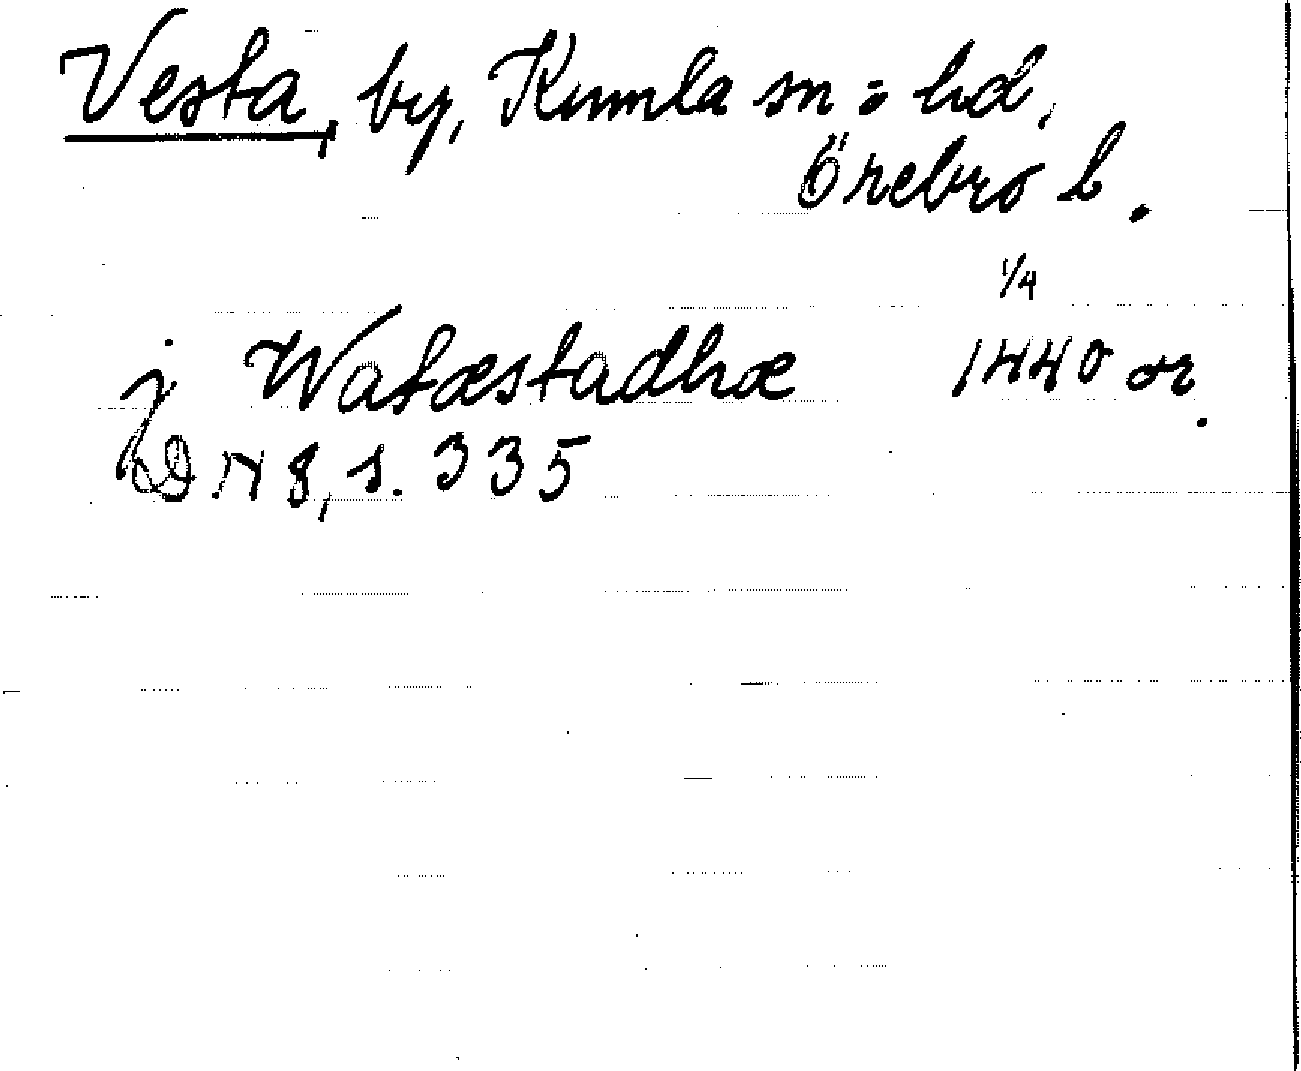 Vesta, by, Kumla sn o hd,
Örebro l.
1/4
j Watæstadhæ 1440 or.
DN 8, s. 335